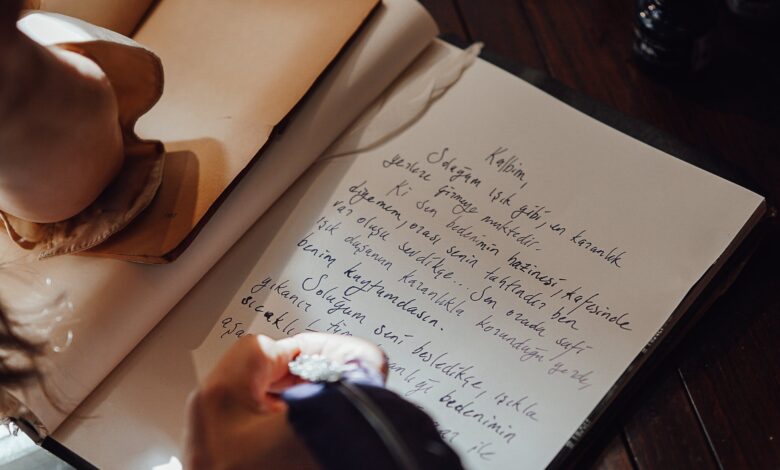 Kalbim,
Soluğum ışık gibi, en karanlık
yerlere girmeye muktedir.
Ki sen bedenimin hazinesi, kafesinde
diyemem, orası senin tahtındır ben
var oluşu sevdikçe... Sen orada safi
ışık düşünün karanlıkla korunduğu yerde,
benim kuytumdasın.
Soluğum seni besledikçe, ışıkla
yıkanır bedenimin
sıcaklı
aşa ile